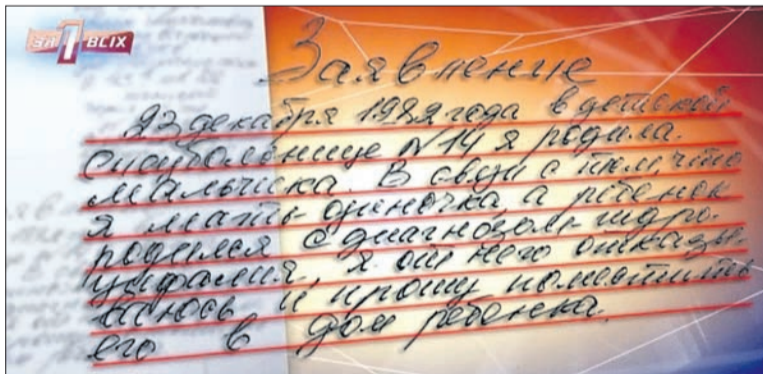 ОДИН ЗА ВСІХ
Заявление
23 декабря 1989 года в детской
спецбольнице №14 я родила
мальчика. В связи с тем, что
я мать-одиночка а ребенок
родился с диагнозом-гидро-
цифалия, я от него отказы-
ваюсь и прошу поместить
его в дом ребенка.